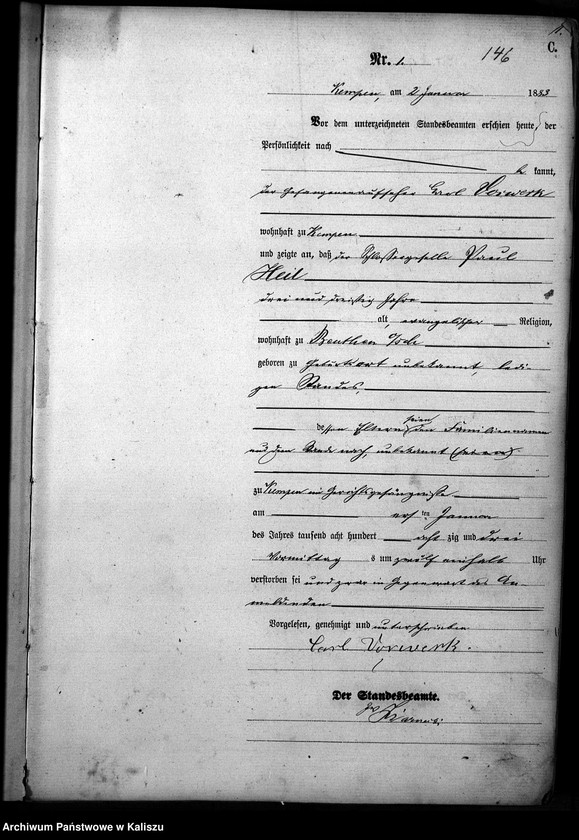 C.
Nr. 1.
146
Kempen, am 2 Januar 1883
Vor dem unterzeichneten Standesbeamten erschien heute, der
Persönlichkeit nach
be kannt,
der Gefangenenaufseher Carl Vorwerk
wohnhaft zu Kempen
und zeigte an, daß der Schlossergeselle Paul
Heil
drei und dreißig Jahre
alt, evangelischer Religion,
wohnhaft zu Beuthen
geboren zu Geburtsort unbekannt, ledi-
gen Standes,
dessen Eltern seien den Familiennamen
und dem Stande nach, unbekannt
zu Kempen im Gerichtsgefängnisse
am ersten Januar
des Jahres tausend acht hundert acht zig und drei
Vormittag s um zwölf einhalb Uhr
verstorben sei und zwar in Gegenwart des An-
meldenden
Vorgelesen, genehmigt und unterschrieben
Carl Vorwerk.
Der Standesbeamte.
Archiwum Państwowe w Kaliszu